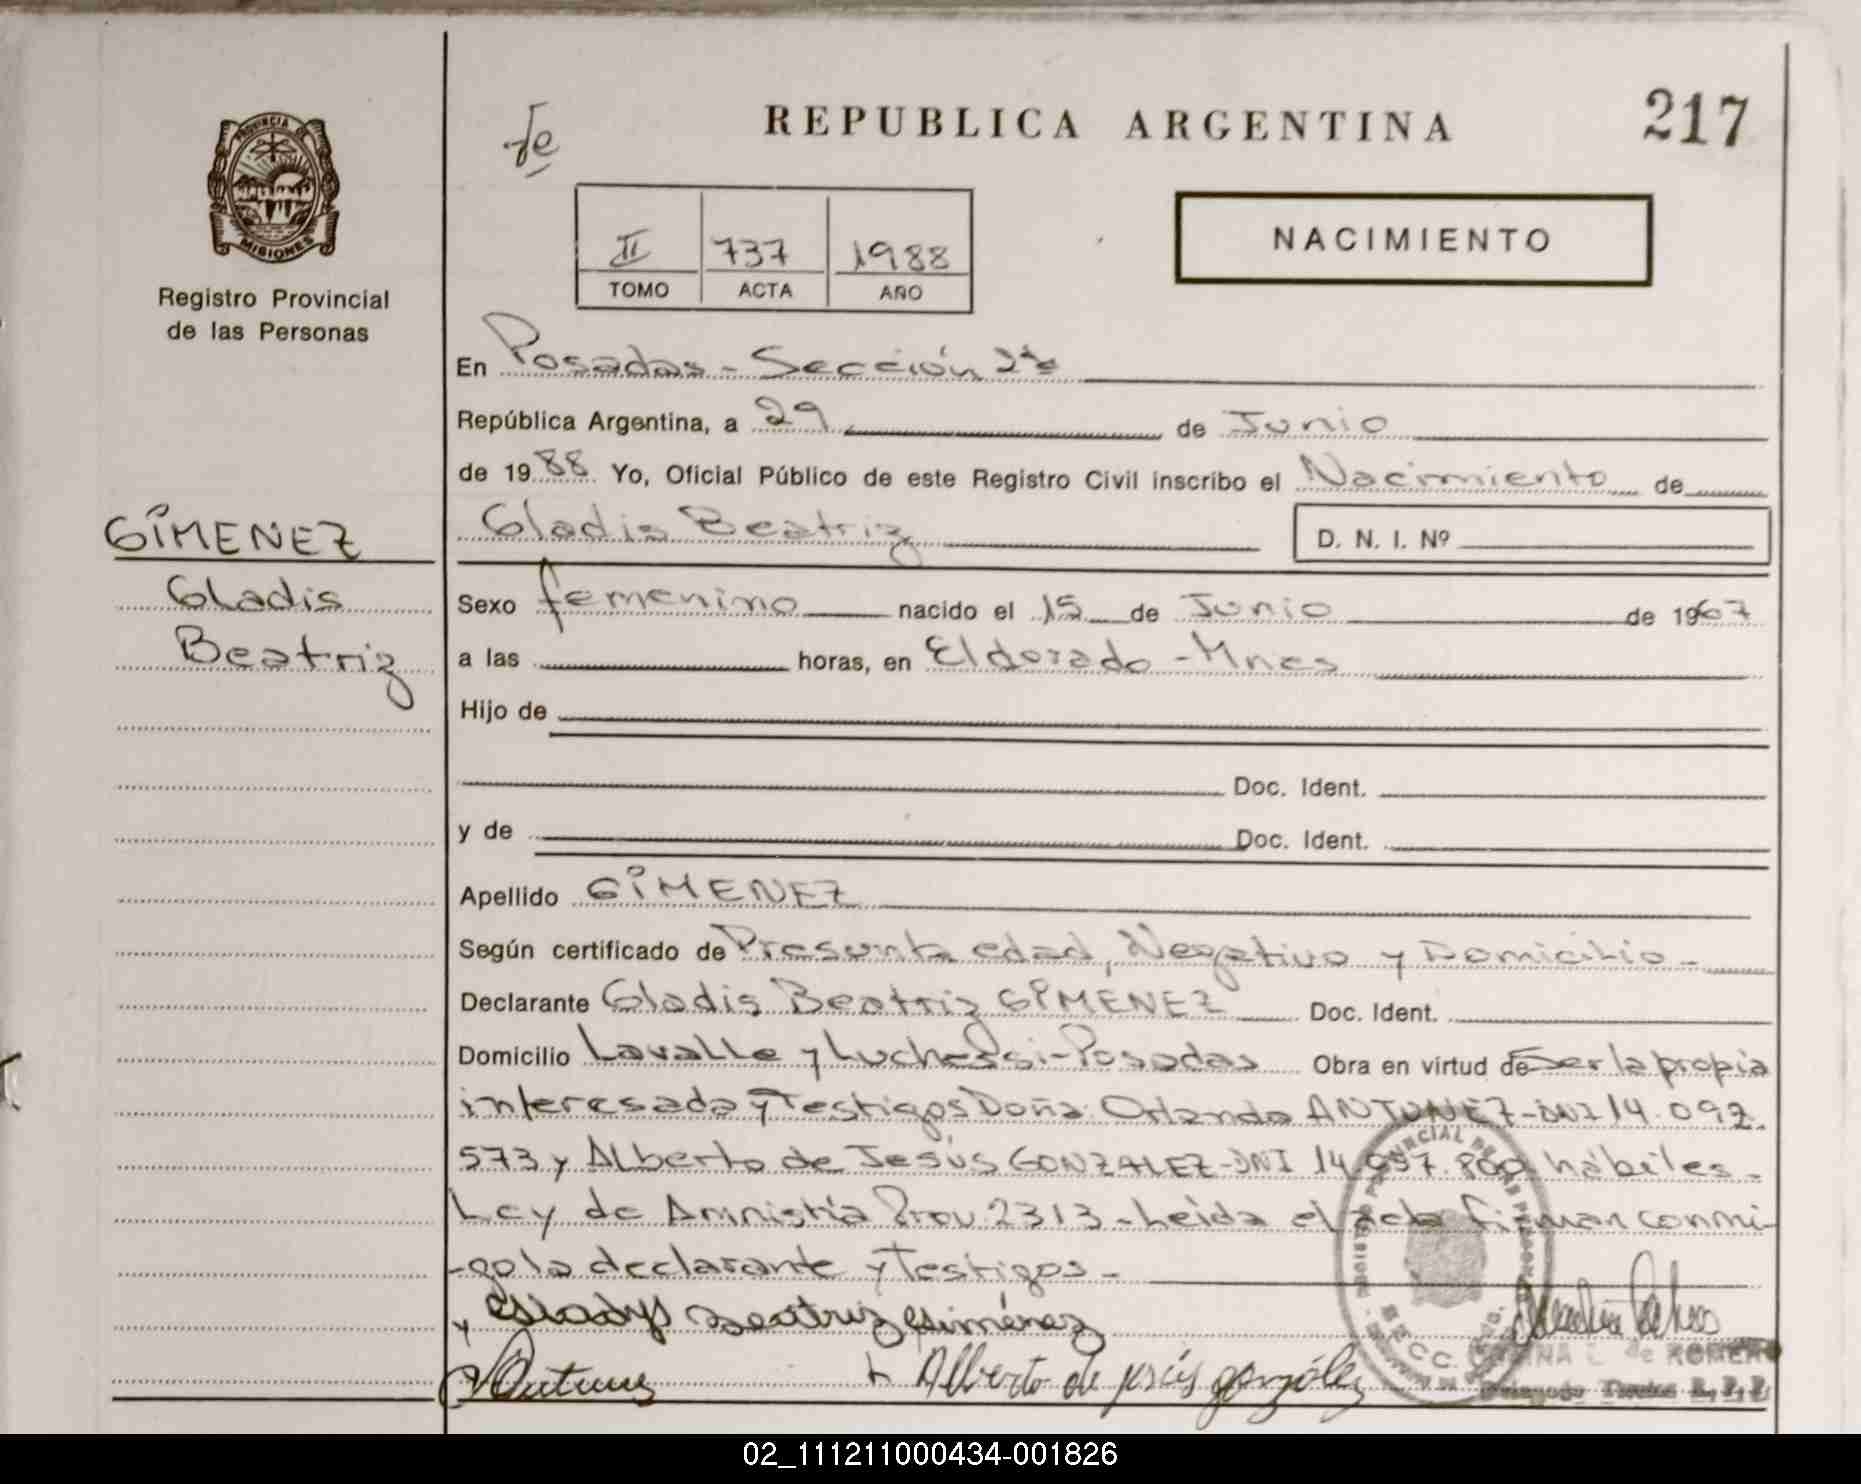 REPUBLICA ARGENTINA
217
PROVINCIA DE
MISIONES
Registro Provincial
de las Personas
II 737 1988
TOMO ACTA AÑO
NACIMIENTO
En Posadas - Sección 2ª
República Argentina, a 29 de Junio
de 1988 Yo, Oficial Público de este Registro Civil inscribo el Nacimiento de
GIMENEZ
Gladis
Beatriz
Gladis Beatriz D. N. I. Nº
Sexo femenino nacido el 15 de Junio de 1967
a las horas, en Eldorado - Mnes
Hijo de
Doc. Ident.
y de Doc. Ident.
Apellido GIMENEZ
Según certificado de Presunta edad, Negativo y Domicilio -
Declarante Gladis Beatriz GIMENEZ Doc. Ident.
Domicilio Lavalle y Luchessi - Posadas Obra en virtud de Ser la propia
interesada y Testigos Doña: Orlanda ANTUNEZ - DNI 14.092.
573 y Alberto de Jesús GONZALEZ - DNI 14.957.800 hábiles -
Ley de Amnistía Prov 2313 - Leída el acta firman conmi-
-go la declarante y Testigos -
Gladys Beatriz Giménez
Antunes Alberto de jesús gonzález
de ROMERO
02_111211000434-001826